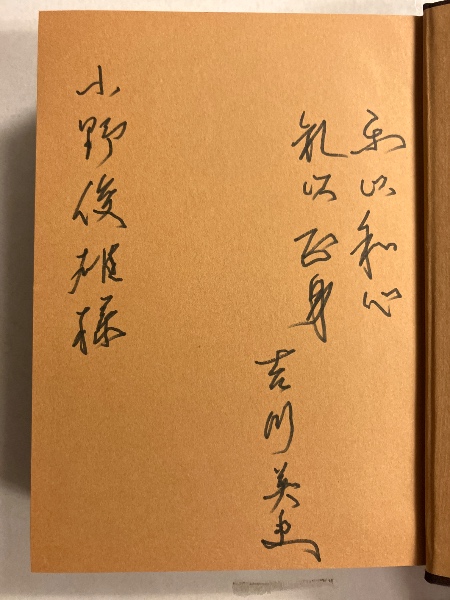 楽以和心
礼以正身
吉川英史
小野俊雄様